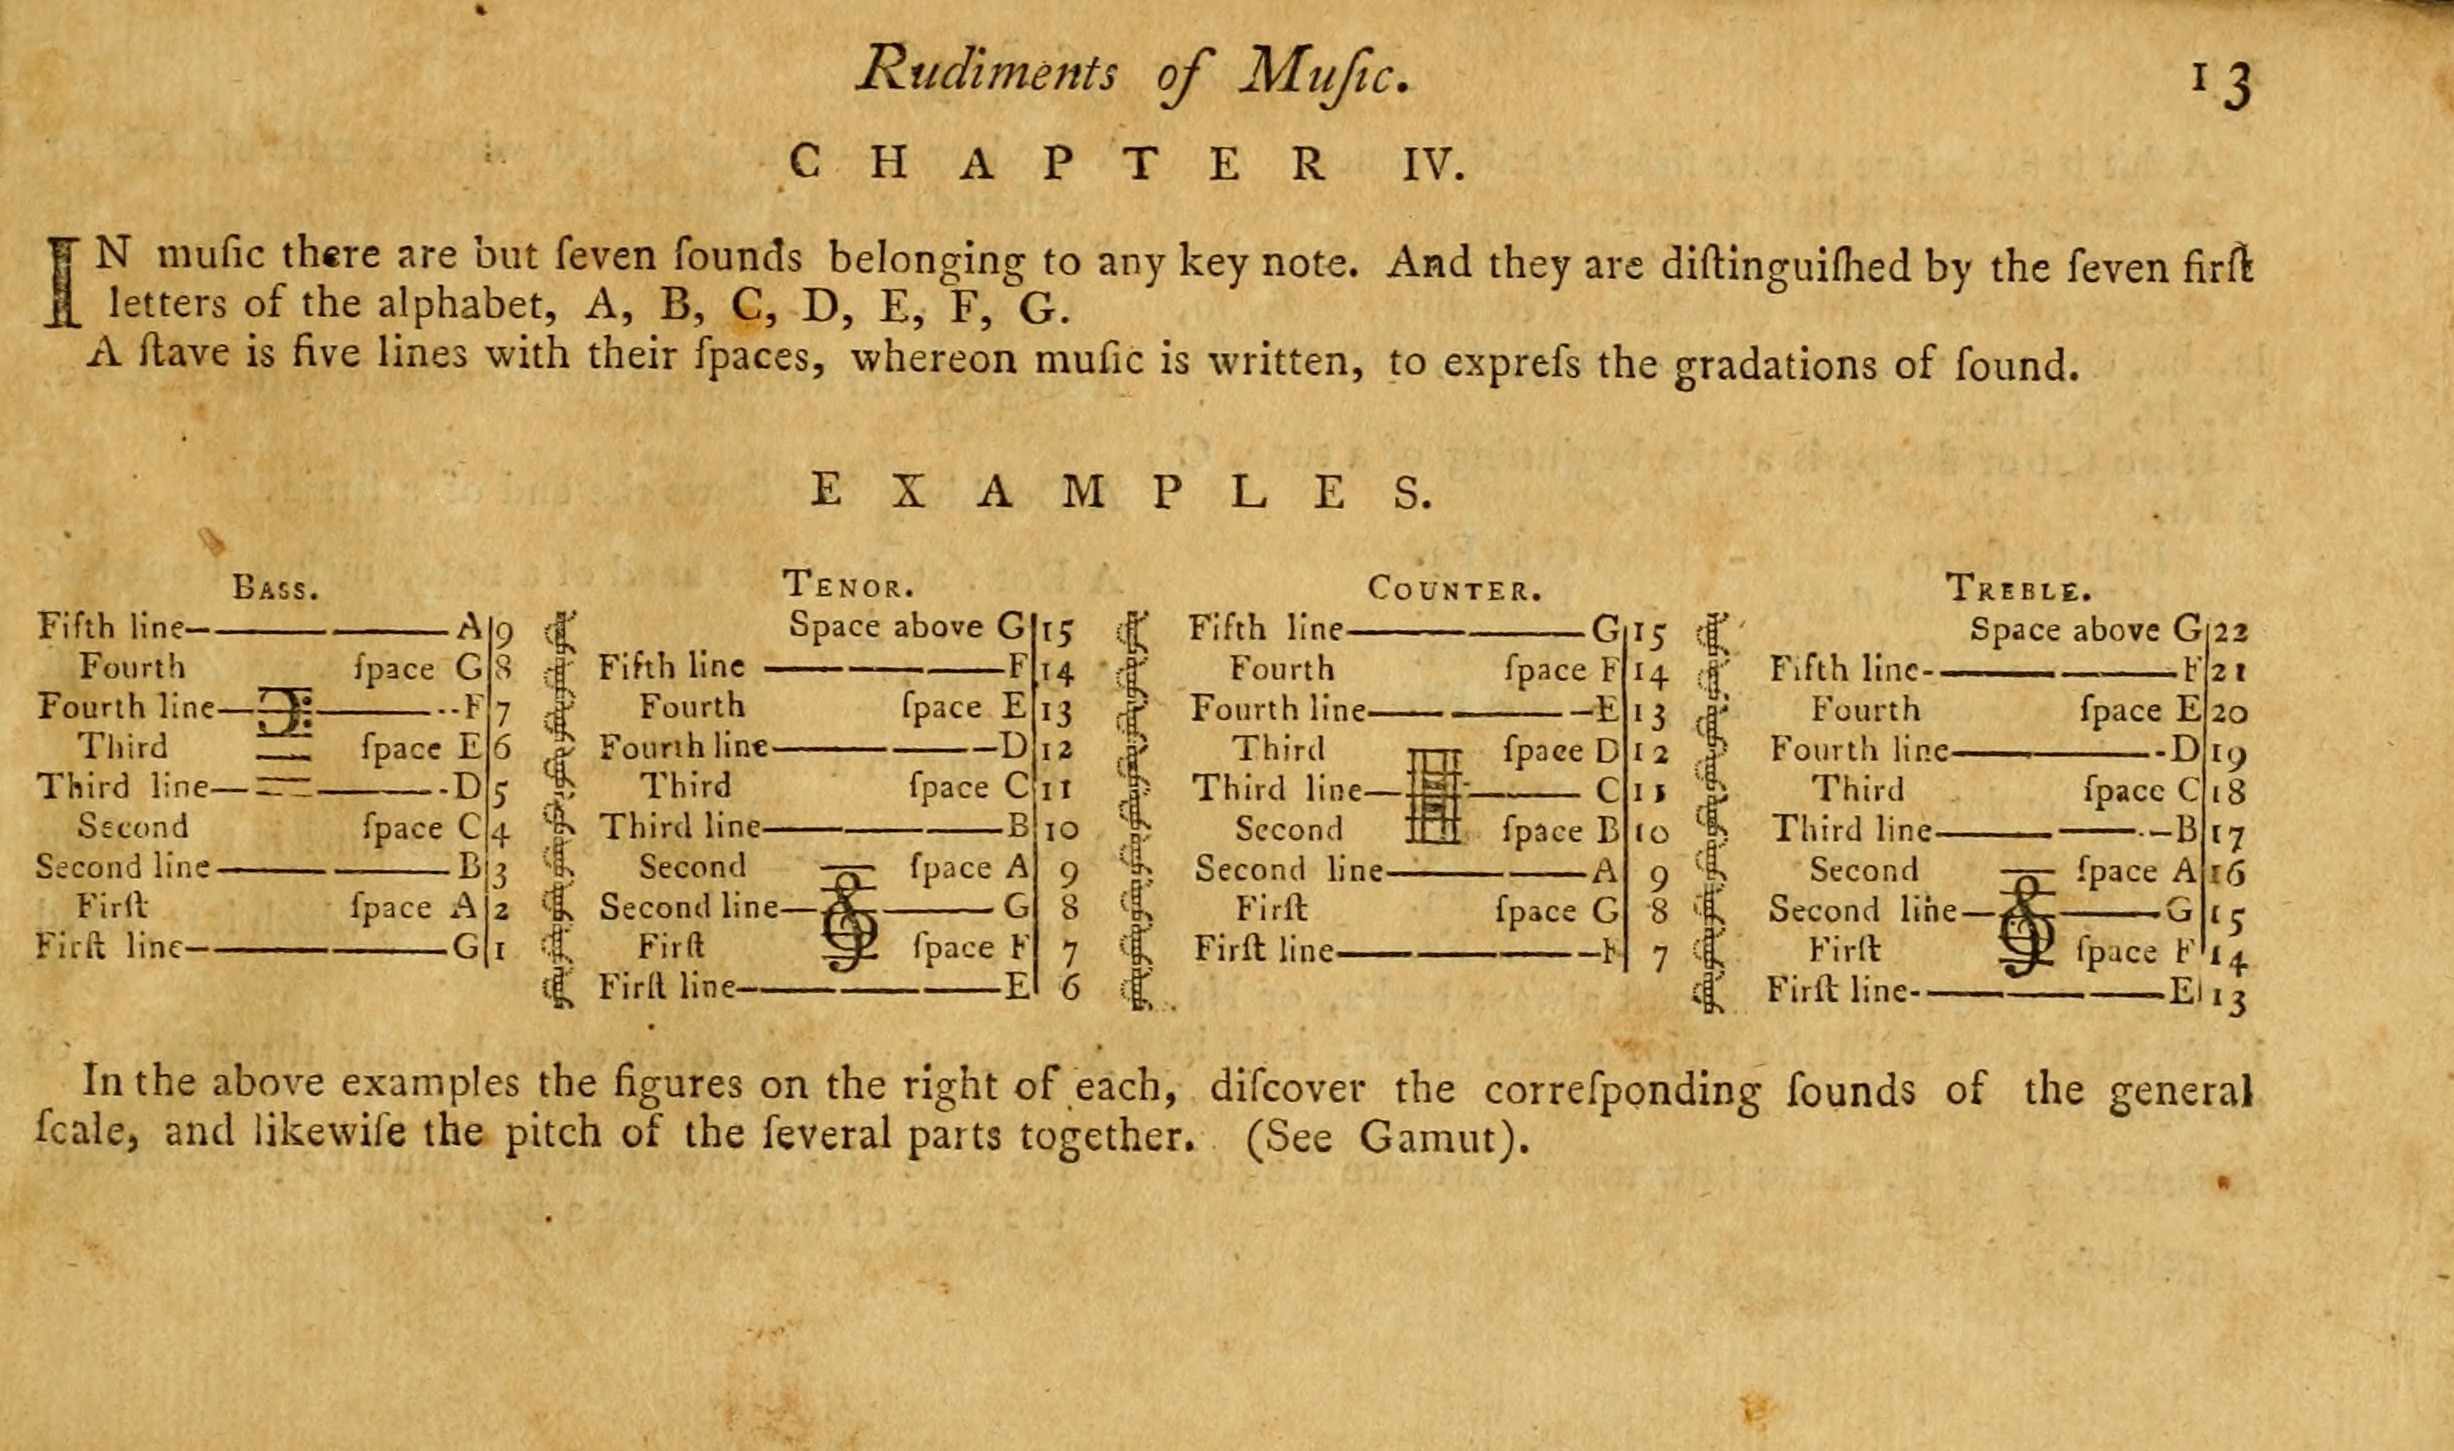 Rudiments of Muſic. 13
CHAPTER IV.
IN muſic there are but ſeven ſounds belonging to any key note. And they are diſtinguiſhed by the ſeven firſt
letters of the alphabet, A, B, C, D, E, F, G.
A ſtave is five lines with their ſpaces, whereon muſic is written, to expreſs the gradations of ſound.
EXAMPLES.
BASS.
Fifth line A 9
Fourth ſpace G 8
Fourth line F 7
Third ſpace E 6
Third line D 5
Second ſpace C 4
Second line B 3
Firſt ſpace A 2
Firſt line G 1
TENOR.
Space above G 15
Fifth line F 14
Fourth ſpace E 13
Fourth line D 12
Third ſpace C 11
Third line B 10
Second ſpace A 9
Second line G 8
Firſt ſpace F 7
Firſt line E 6
COUNTER.
Fifth line G 15
Fourth ſpace F 14
Fourth line E 13
Third ſpace D 12
Third line C 11
Second ſpace B 10
Second line A 9
Firſt ſpace G 8
Firſt line F 7
TREBLE.
Space above G 22
Fifth line F 21
Fourth ſpace E 20
Fourth line D 19
Third ſpace C 18
Third line B 17
Second ſpace A 16
Second line G 15
Firſt ſpace F 14
Firſt line E 13
In the above examples the figures on the right of each, diſcover the correſponding ſounds of the general
ſcale, and likewiſe the pitch of the ſeveral parts together. (See Gamut).